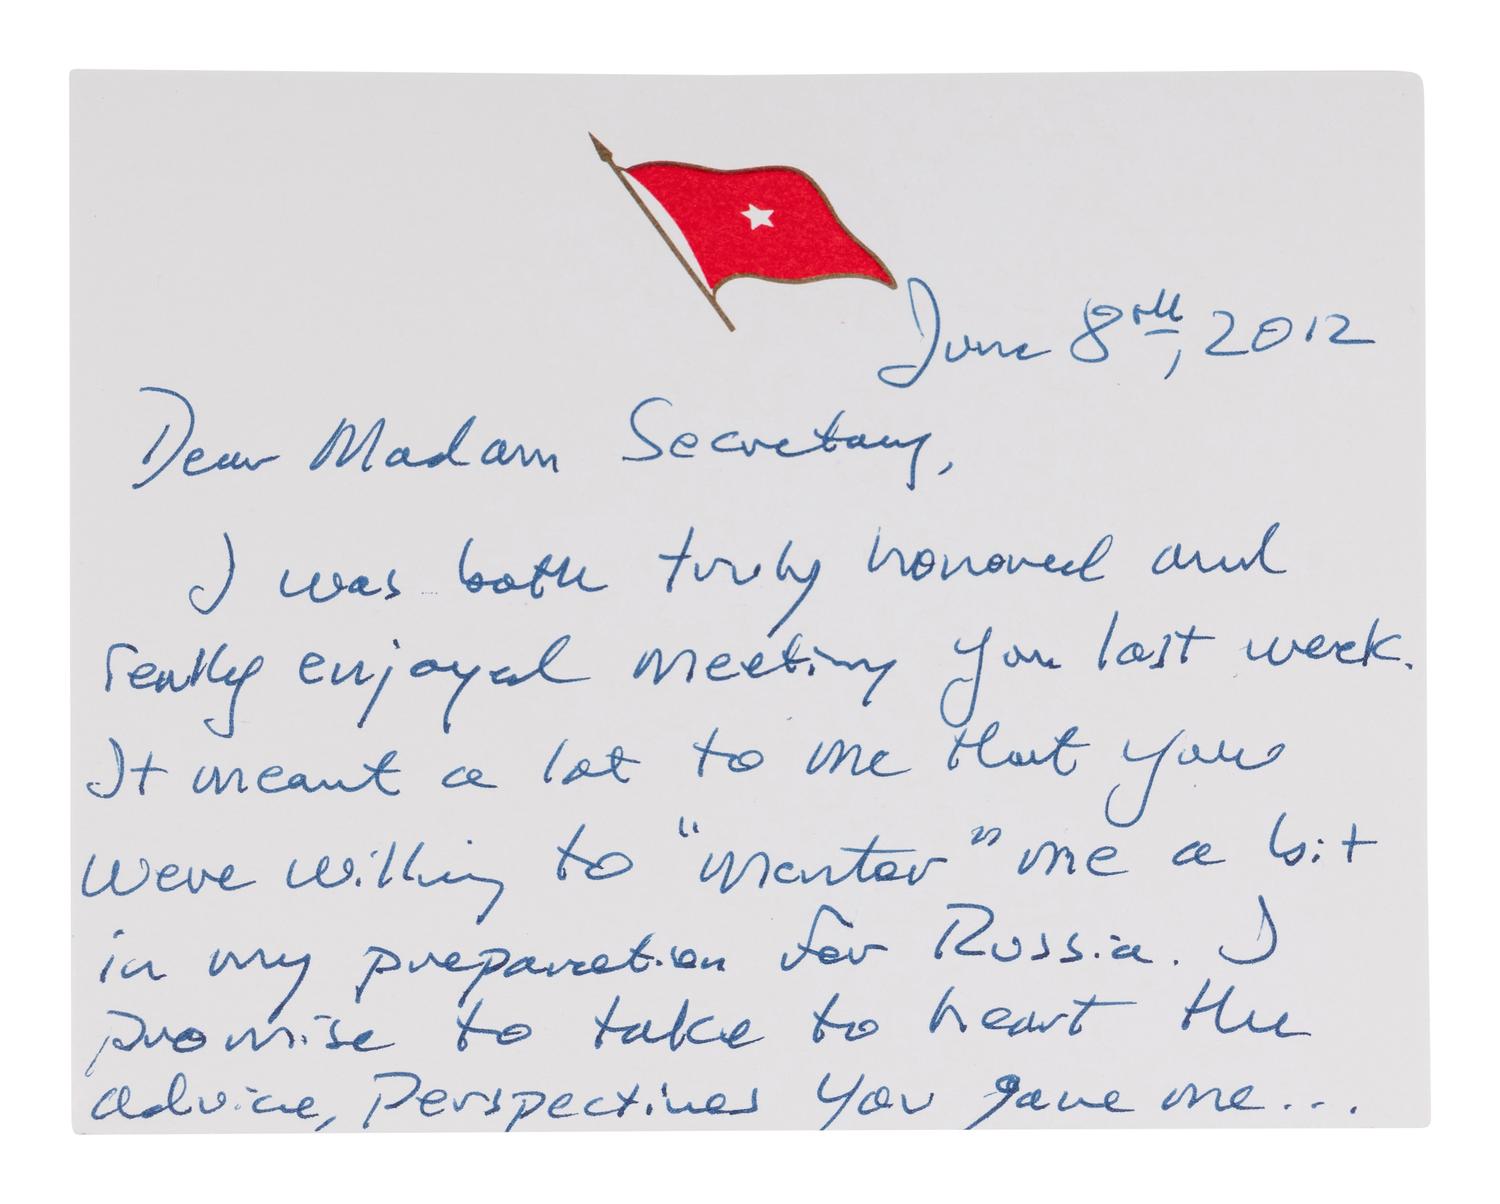 June 8th, 2012
Dear Madam Secretary,
I was both truly honored and
really enjoyed meeting you last week.
It meant a lot to me that you
were willing to "mentor" me a bit
in my preparation for Russia. I
promise to take to heart the
advice, perspectives you gave me...